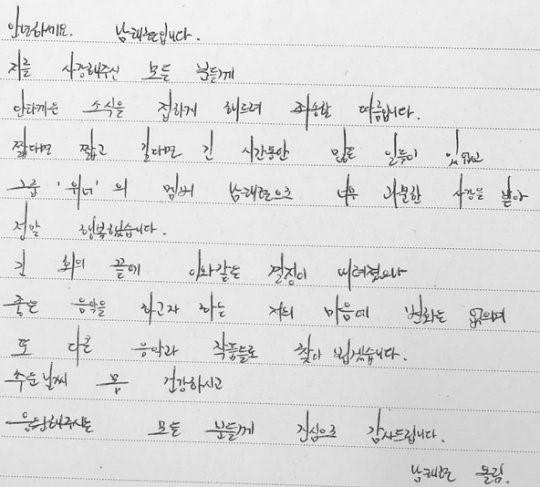 안녕하세요. 남태현입니다.
저를 사랑해주신 모든 분들께
안타까운 소식을 접하게 해드려 죄송한 마음입니다.
짧다면 짧고 길다면 긴 시간동안 많은 일들이 있었고
그룹 '위너'의 멤버 남태현으로 너무 과분한 사랑을 받아
정말 행복했습니다.
긴 회의 끝에 이와같은 결정이 내려졌으나
좋은 음악을 하고자 하는 저의 마음에 변화는 없으며
또 다른 음악과 작품들로 찾아 뵙겠습니다.
추운날씨 몸 건강하시고
응원해주시는 모든 분들께 진심으로 감사드립니다.
남태현 올림.